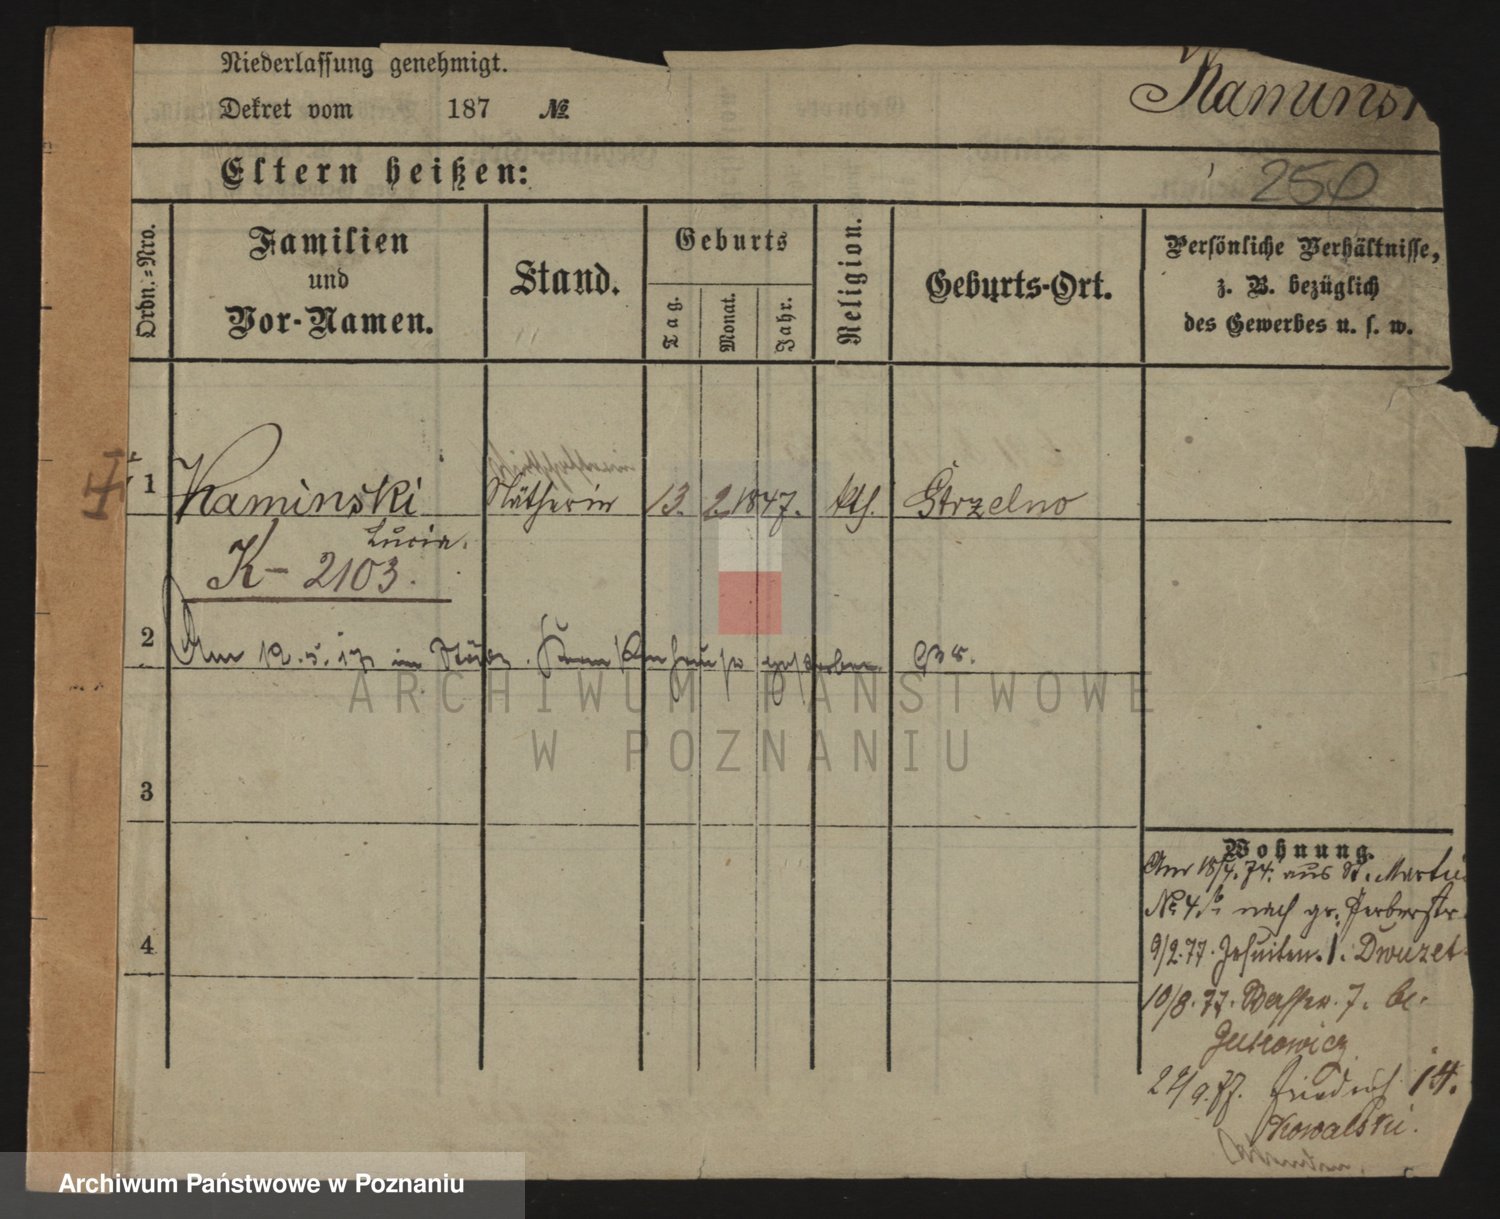 Niederlassung genehmigt.
Dekret vom 187 №
Kaminsk
Eltern heißen:
250
Ordn.=Nro.
Familien
und
Vor-Namen.
Stand.
Geburts
Tag.
Monat.
Jahr.
Religion.
Geburts-Ort.
Persönliche Verhältnisse,
z. B. bezüglich
des Gewerbes u. s. w.
Wirthschafterin
1 Kaminski Nätherin 13. 2. 1847. kth. Strzelno
Lucia.
K- 2103.
2
Am 12. 5. 17 im Städt. Krankenhause gestorben.
ARCHIWUM PAŃSTWOWE
W POZNANIU
3
4
Wohnung.
Am 18/4. 74. aus St. Martin
No 4 nach gr. Gerberstr.
9/2. 77. Jesuiten. 1. Dwuzet
10/8. 77. Wasser. 7. be.
Gutkowicz
24/9. 77. Friedrich 14.
Kowalski.
Archiwum Państwowe w Poznaniu